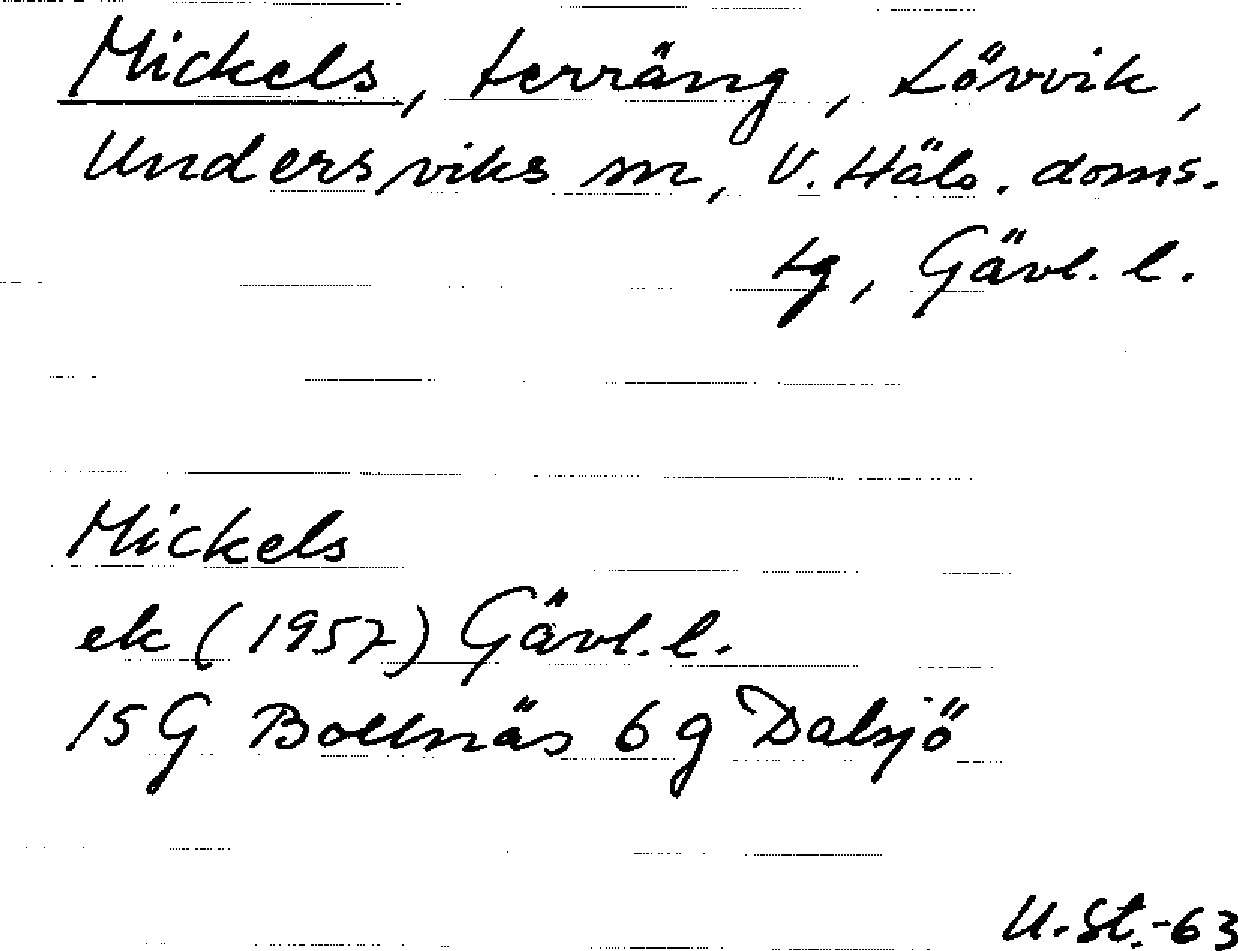 Mickels, terräng, Lövvik,
Undersviks sn, V. Häls. doms.
tg, Gävl. l.
Mickels
ek (1957) Gävl. l.
15G Bollnäs 6g Dalsjö
U. St. -63